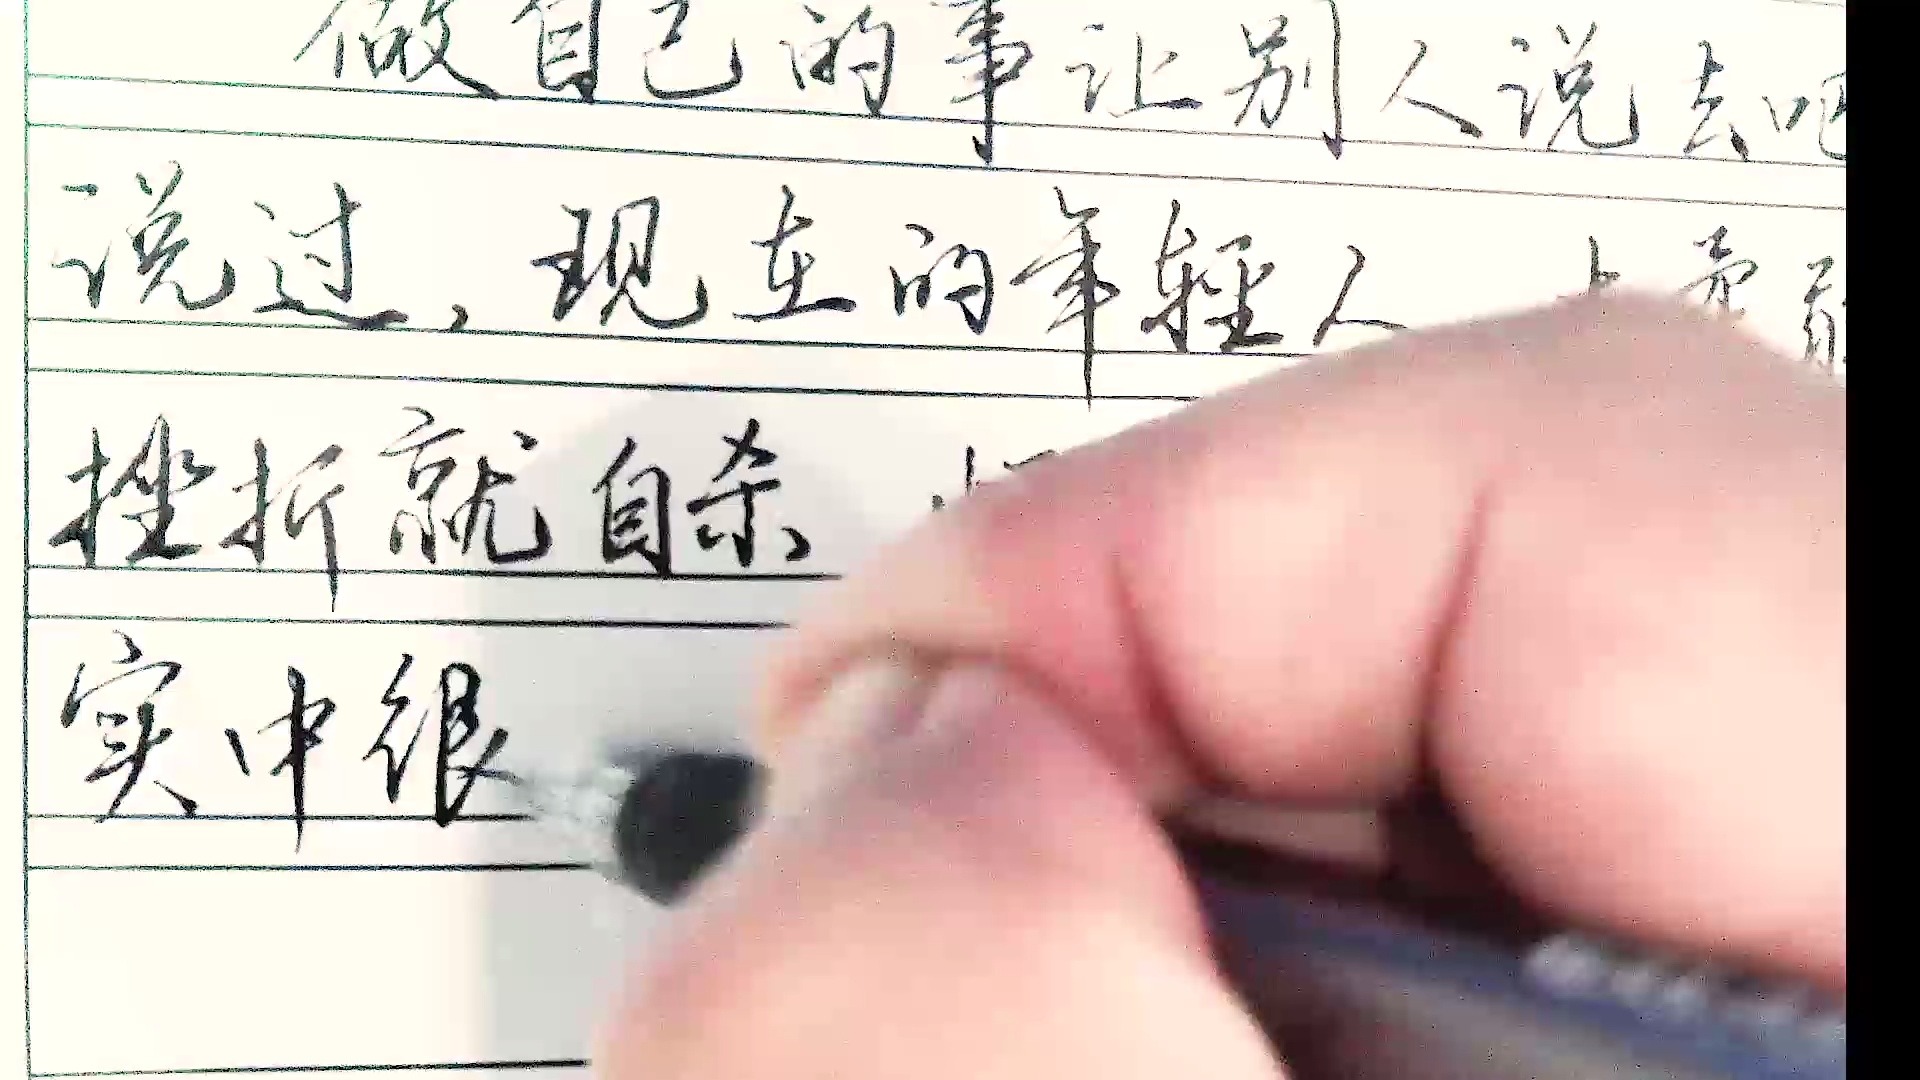 做自己的事让别人说去吧
说过，现在的年輕人
挫折就自杀，
实中很